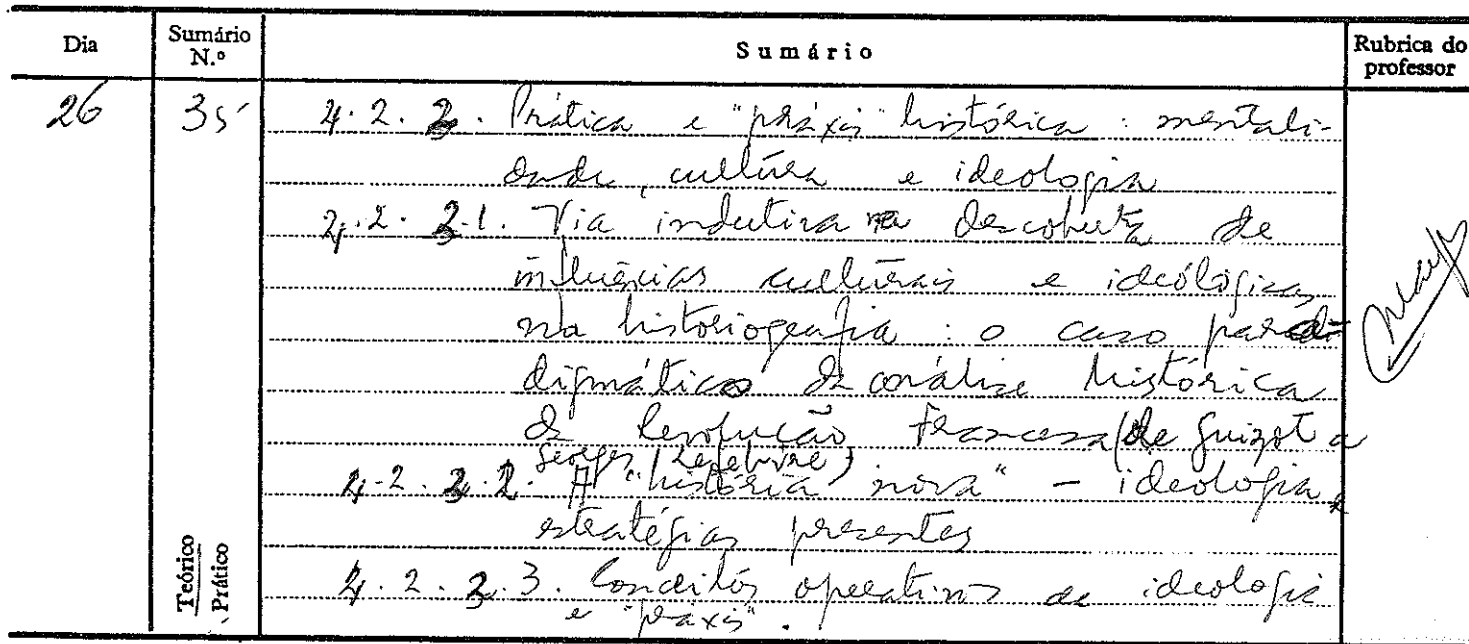 Dia Sumário N.º Sumário Rubrica do professor
26 35 4.2.2. Prática e "práxis" histórica: mentali-
dade, cultura e ideologia
4.2.2.1. Via indutiva na descoberta de
influências culturais e ideológicas
na historiografia: o caso para-
digmático da análise histórica
da Revolução Francesa (de Guizot a
Georges Lefebvre)
4.2.2.2. A "história nova" - ideologia,
estratégias presentes
4.2.2.3. Conceitos operativos de ideologia
e "práxis".
Teórico
Prático